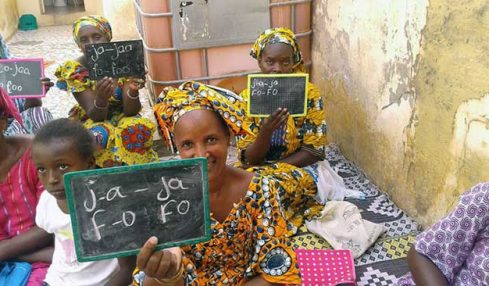 ja-jaa
foo
jaa
foo
ja-ja
Fo-Fo
j-a-ja
f-o FO